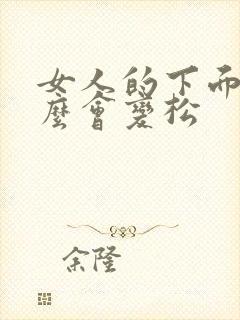 女人的下面
麼會變松
余隆